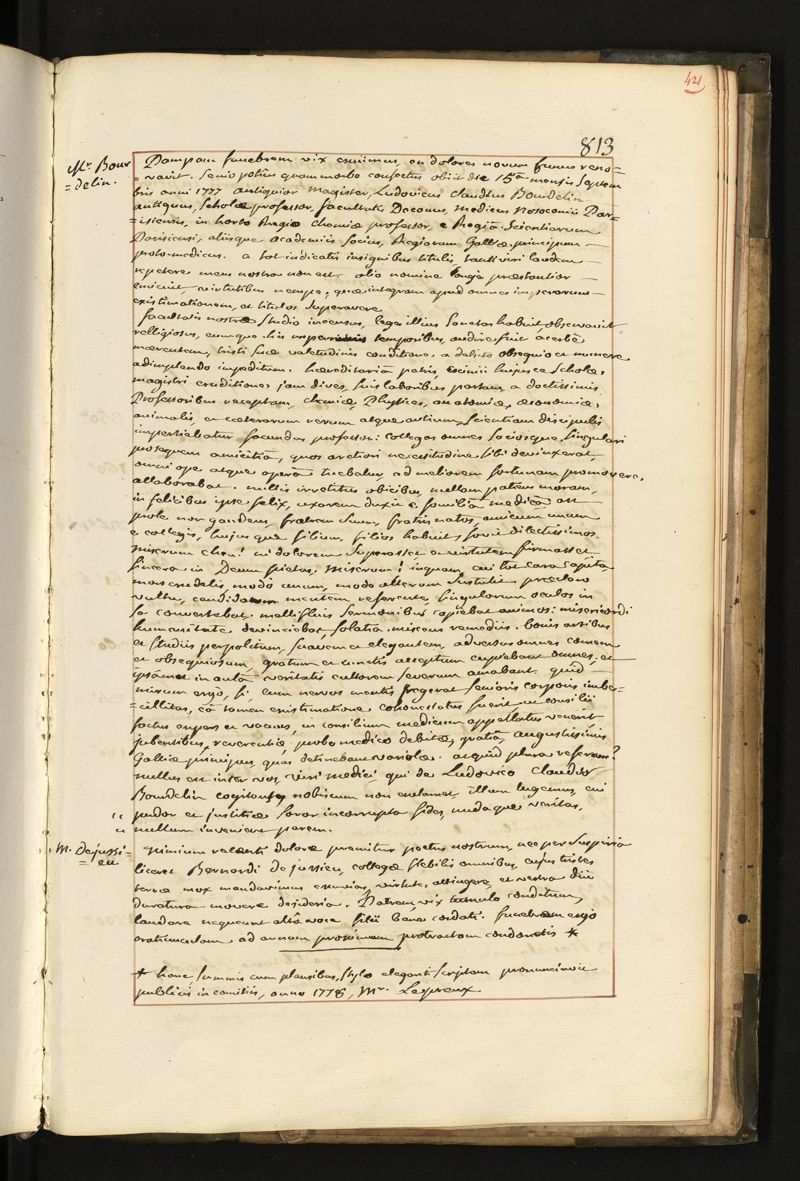 421
813
Mr. Bour
= delin.
Pompam funebrem vix exuimus, en dolores novum funus reno-
= vavit. Senio potius quam morbo confectus obiit die 15a mensis Septem
bris anni 1777 antiquior magister, Ludovicus Claudius Bourdelin
antiquus, Scholæ professor, facultatis Decanus, medicus Nosocomii Par-
isiensis, in horto Regio chemiæ professor, e Regiâ Scientiarum
Parisiensi, aliisque academiis socius, Regiarum Galliæ principum
proto-medicus. a tot indicatis insignibus titulis, tanti viri laudem
repetere mens nostra non est. alio nomine longè præstantior
emicuit virtutibus nempe, quæ integram apud omnes
existimationem, et titulos superavere
facultatis nostræ Studio incensus, leges illius Sanctas habuit, observavit
relligiosus, eumque his temporibus, audire fuit acerbè
mærentem, tristi suæ valetudinis conditione a debito obsequio et munere
adimplendo impeditum. hæreditariâ patris, eximii hujusce Scholæ
magistri eruditione jam dives, suis laboribus partam, a doctissimis
Professoribus receptam, chemiæ, Physices, anatomiæ, œconomiæ
animalis, et cæterarum rerum atque artium Scientiam discipulis
impertiebatur facundus professor: collegas omnes Sociosque Singulari
prosequens amicitiâ, quos arctiori necessitudine Sibi devinxerat,
omni ope atque operâ tuebatur, ad meliorem fortunam promovere
allaborabat. nullis irretitus obicibus, nullam patiens moram,
in felicibus ipse felix, uxorem duxit e familiâ medicâ at
prole non gaudens, fratrem suum, fratris natos, amicum unum
e collegis, hujus que filium, filios habuit, fovit dilectissimos.
miserum eheu! ni dolorem Suprasset a virtutem firmasset
Sincera in Deum pietas. Miserum! inquam, cui tot cara capita
mors crudelis, modò unum, modo alterum Sustulit præclaro
vultu, candidam mentem referente, Singulorum oculos in
se convertebat. mellifluis Sermonibus capiebat animos: misericordi
humanitate devinciebat, Solatia miscens remediis. bonis artibus
et studiis perpolitum, suavem et elegantem, adversus omnes comem
et obsequiosum, gratum et cunctis acceptum cupiebant omnes, et
ipsâmet in aulâ veritatis cultorem severum amabant. quid
mirum ergo, si, cum nervos mentis fregerat senioris corporis imbe-
= cillitas, eâ tamen existimatione cohonestatus fuerit ut consilii
factus expers et vacuus, in consilium medicum appellatus venerit
jubentibus, reverentiæ, probo medico debitæ, gratiâ, augustissimis
Galliæ principibus, quas detinebant variolæ. at quid plura referam?
nullus est inter vos, viri medici, qui de Ludovico Claudio
Bourdelin cogitans nobiscum non exclamet. illum lugemus, cui
pudor et justitiæ Soror incorrupta fides, nuda que veritas,
nullum invenient parem.
M. de jussi=
= eu
Nimium recenti dolore premitur pectus nostrum, nec per Suspiria
liceret Bernardi de jussieu, collegæ flebilis omnibus, cujus tristes
terræ mox mandavimus exuvias, virtutes attingere, et vestra diu
duratura movere desideria. Patrem vix tumulo conditum,
laudare nequeunt altâ voce filii bene cordati. funebrem ergo
oratiunculam ad annum proximum protractam condonetis *
* hanc, summis cum plausibus, stylo eleganti scriptam pronunciavit
publicis in comitiis, anno 1778, Mr. Lepreux